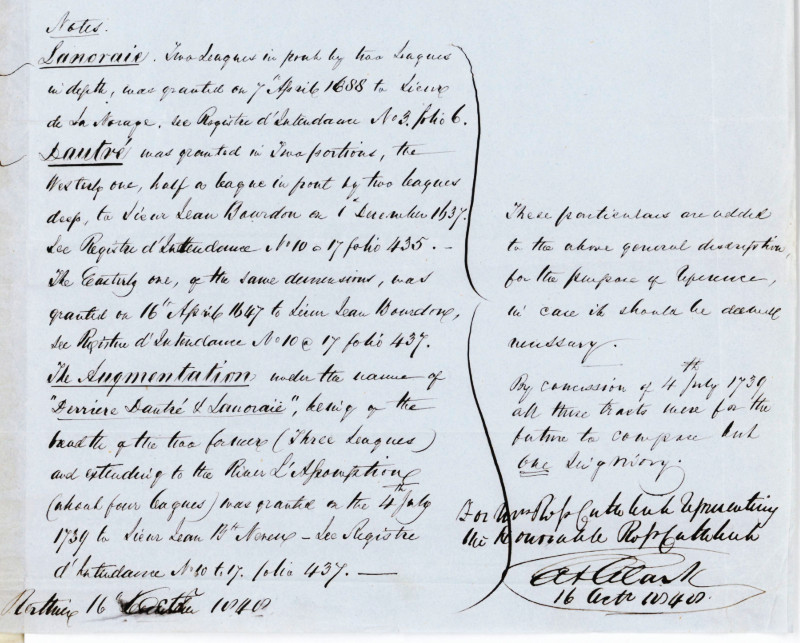 Notes.
Lanoraie. Two Leagues in front by two Leagues
in depth, was granted on 7th April 1688 to Sieur
de La Norage. see Registre d'Intendance No 3. folio 6.
Dautré was granted in Two portions, the
Westerly one, half a league in front by two leagues
deep, to Sieur Jean Bourdon on 1st December 1637.
See Registre d'Intendance No 10 @ 17 folio 435. —
The Easterly one, of the same dimensions, was
granted on 16th April 1647 to Sieur Jean Bourdon,
see Registre d'Intendance No 10 @ 17 folio 437.
The Augmentation under the name of
"Derriere Dautré & Lanoraie", being of the
breadth of the two former (Three Leagues)
and extending to the River L'Assomption
(about four leagues) was granted on the 4th July
1739 to Sieur Jean Bte Neveu — See Registre
d'Intendance No 10 @ 17. folio 437. —
Berthier 16th 1848
These particulars are added
to the above general description,
for the purpose of reference,
in case it should be deemed
necessary.
By concession of 4th July 1739
all these tracts were for the
future to compose but
one Seigniory.
For Mrs Ross Cuthbert representing
the Honourable Ross Cuthbert
16 Octr 1848.